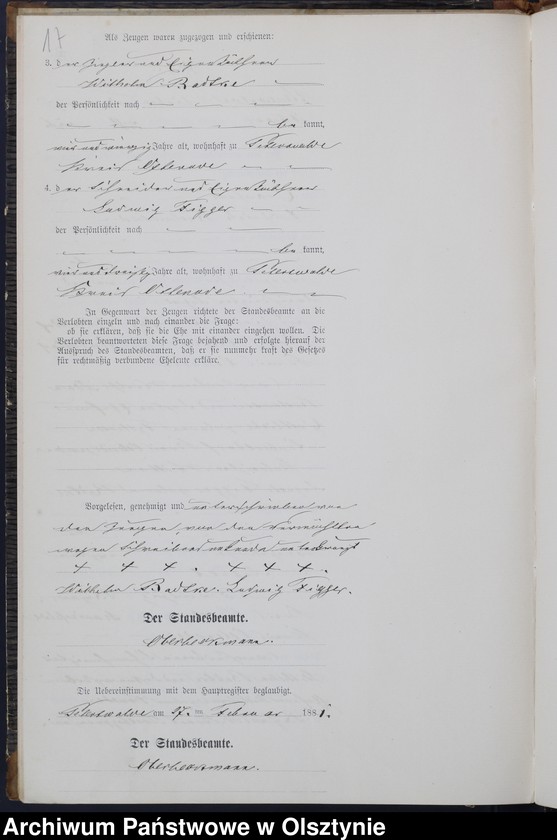 17
Als Zeugen waren zugezogen und erschienen:
3. der und Eigenkäthner
Wilhelm Radtke
der Persönlichkeit nach
be kannt,
Jahre alt, wohnhaft zu
Kreis Osterode
4. der Schneider und Eigenkäthner
Ludwig
der Persönlichkeit nach
be kannt,
vier und dreißig Jahre alt, wohnhaft zu
Kreis Osterode
In Gegenwart der Zeugen richtete der Standesbeamte an die
Verlobten einzeln und nach einander die Frage:
ob sie erklären, daß sie die Ehe mit einander eingehen wollen. Die
Verlobten beantworteten diese Frage bejahend und erfolgte hierauf der
Ausspruch des Standesbeamten, daß er sie nunmehr kraft des Gesetzes
für rechtmäßig verbundene Eheleute erkläre.
Vorgelesen, genehmigt und unterschrieben von
den Zeugen, von den
wegen Schreibens unkunde unterkreuzt
+ + + . + + + .
Wilhelm Radtke. Ludwig
Der Standesbeamte.
Die Uebereinstimmung mit dem Hauptregister beglaubigt.
am 27. ten Februar 1881.
Der Standesbeamte.
Archiwum Państwowe w Olsztynie